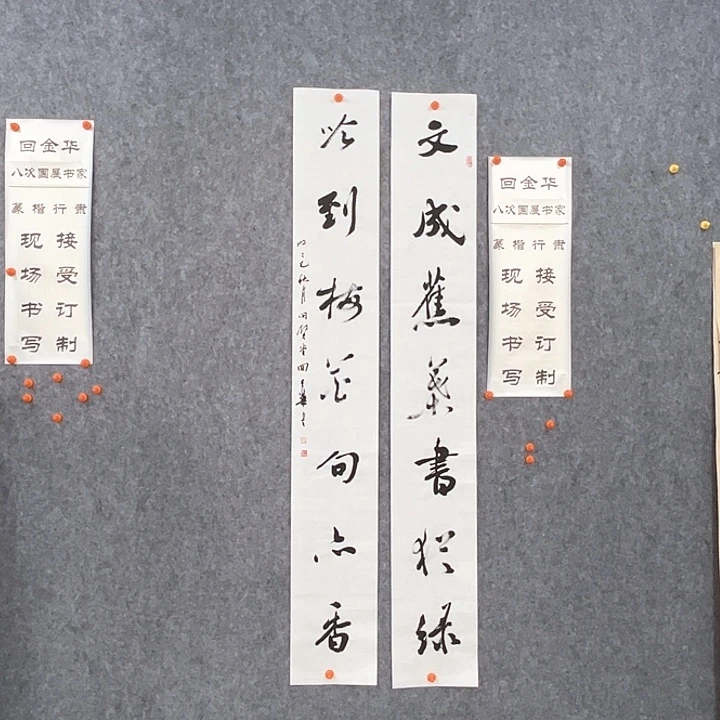 文成蕉叶書犹绿
吟到梅花句亦香
回金华
八次国展书家
篆楷行隶
接受订制
现场书写
回金华
八次国展书家
篆楷行隶
接受订制
现场书写